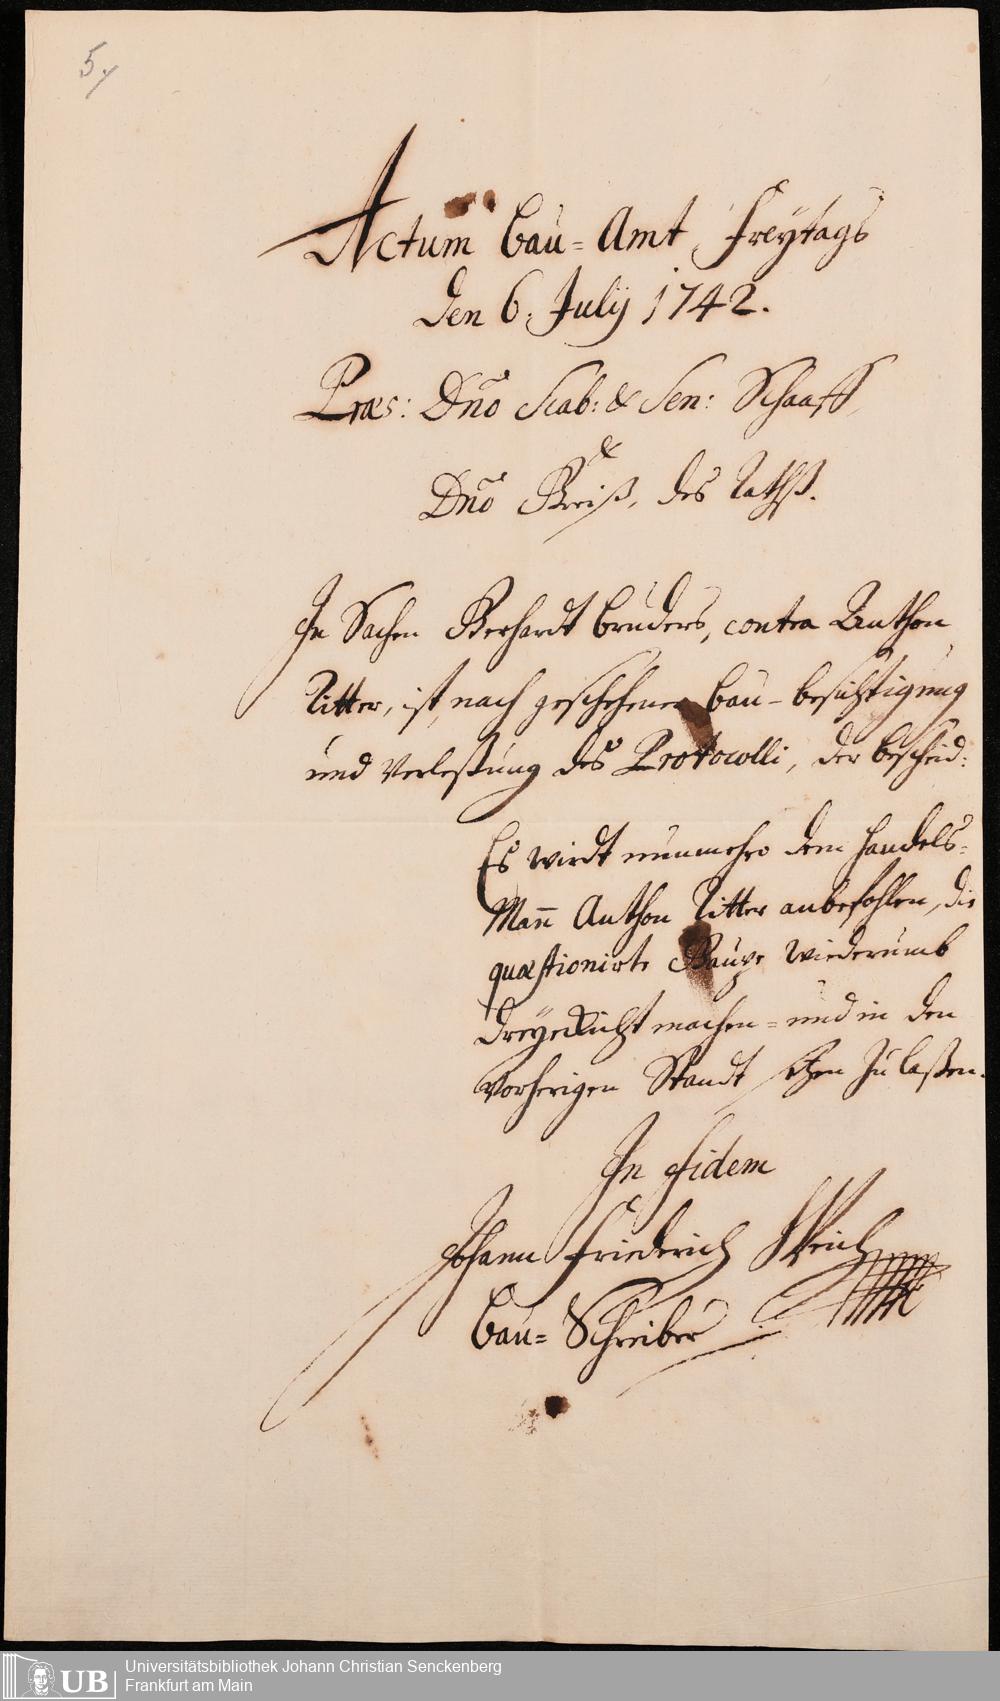 5.
Actum Bau-Amt, Freytags
den 6. July 1742.
Præs: Dño Scab: & Sen: Schaaff
&
Dño Preiß, des Raths.
In Sachen Gerhardt Bruders, contra Anthon
Ritter, ist, nach geschehener Bau-besichtigung
und Verlesung des Protocolli, der bescheid:
Es wirdt nunmehro dem Handels-
Mann Anthon Ritter anbefohlen, die
quæstionirte wiederumb
dreyeckicht machen- und in den
vorherigen Standt setzen zu laßen.
In fidem
Johann Friederich
Bau-Schreiber
UB
Universitätsbibliothek Johann Christian Senckenberg
Frankfurt am Main